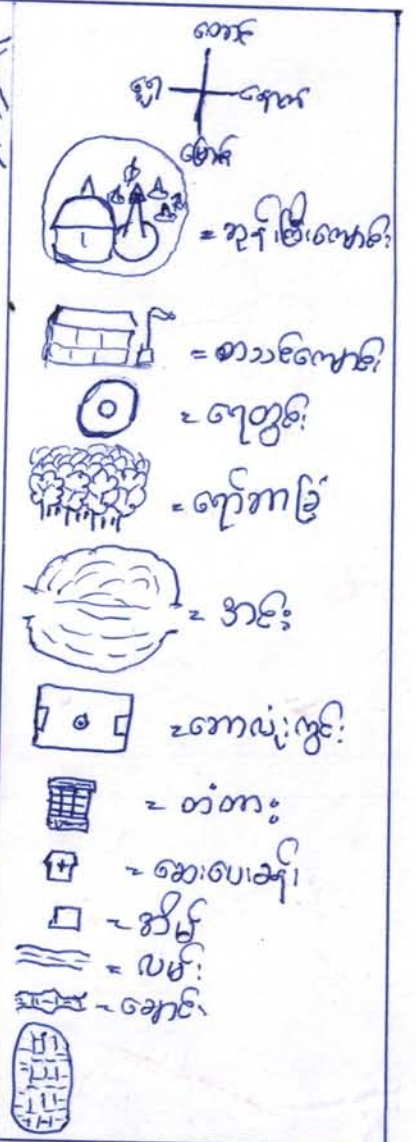 တောင်
အရှေ့ အနောက်
မြောက်
= ဘုန်းကြီးကျောင်း
= စာသင်ကျောင်း
= ရေတွင်း
= ရော်ဘာခြံ
= အင်း
= ဘောလုံးကွင်း
= တံတား
= ဆေးပေးခန်း
= အိမ်
= လမ်း
= ချောင်း